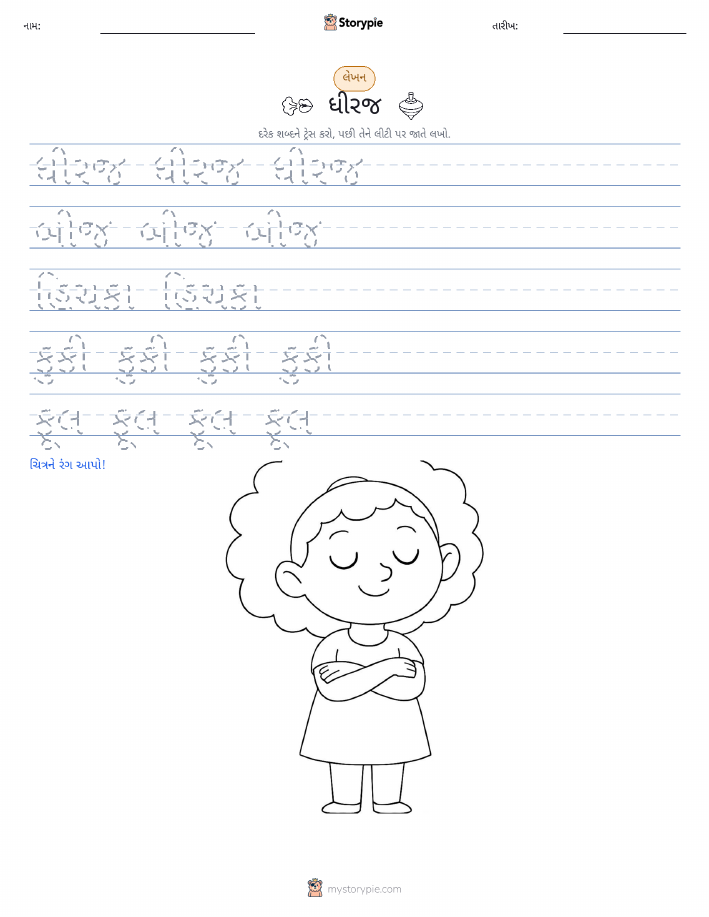 નામ: Storypie તારીખ:
લેખન
ધીરજ
દરેક શબ્દને ટ્રેસ કરો, પછી તેને લીટી પર જાતે લખો.
ધીરજ ધીરજ ધીરજ
બીજ બીજ બીજ
હિચકા હિચકા
કુકી કુકી કુકી કુકી
ફૂલ ફૂલ ફૂલ ફૂલ
ચિત્રને રંગ આપો!
mystorypie.com